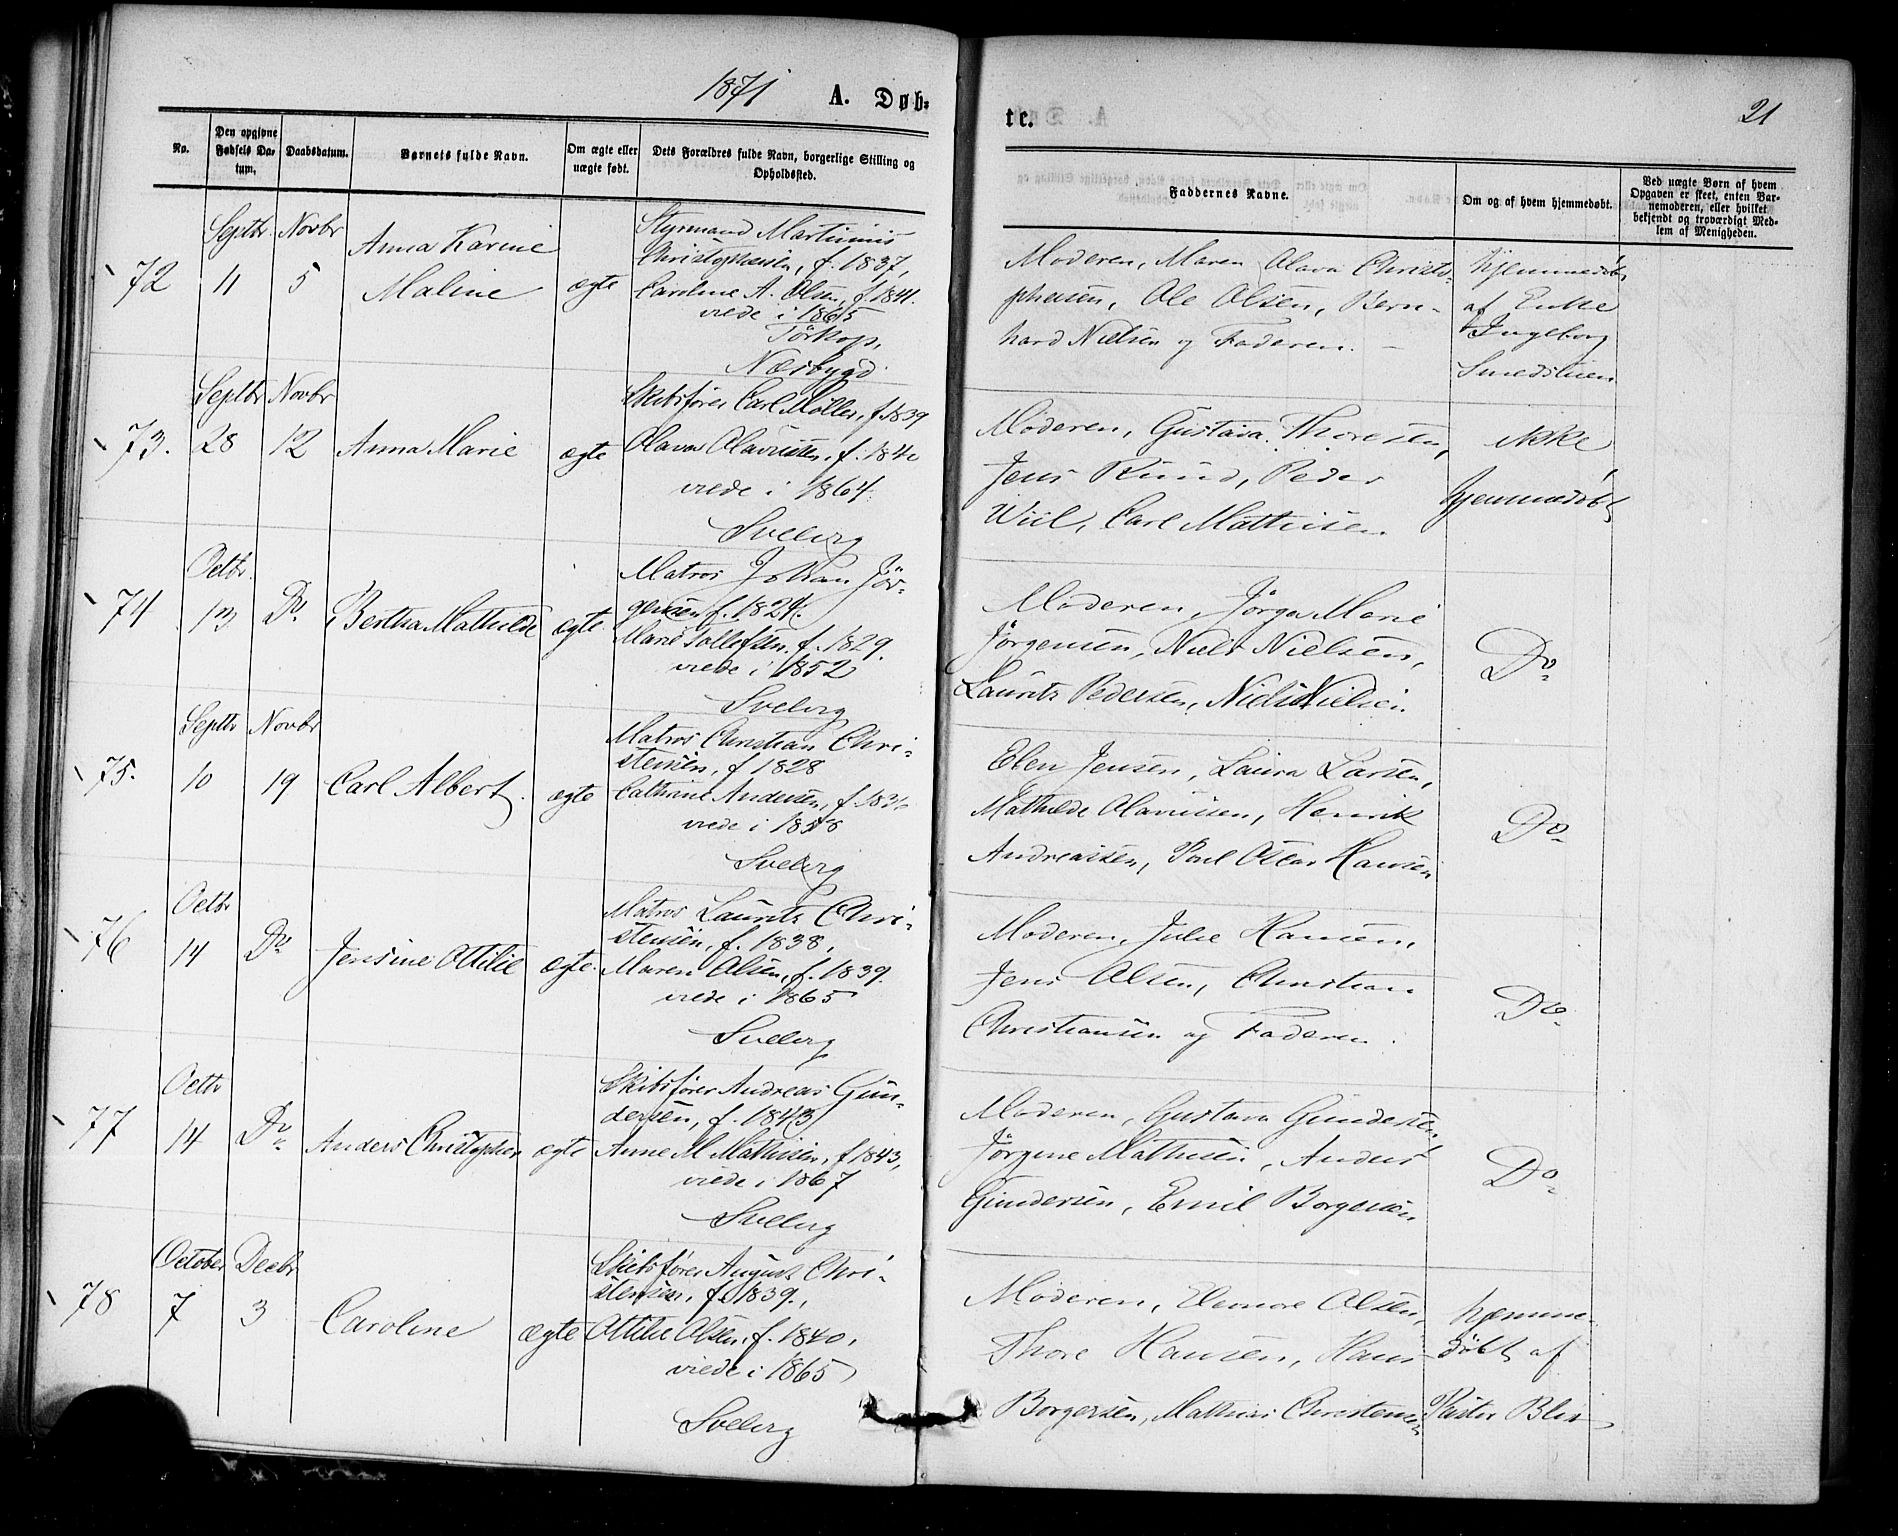 1871 A. Døb-
te. 21
No.
Den opgivne Fødsels Da-tum.
Daabsdatum.
Barnets fulde Navn.
Om ægte eller uægte født.
Dets Forældres fulde Navn, borgerlige Stilling og Opholdssted.
Faddernes Navne.
Om og af hvem hjemmedøbt.
Ved uægte Børn af hvem Opgaven er skeet, enten Bar-nemoderen, eller hvilket bekjendt og troværdigt Med-lem af Menigheden.
72
Septbr
11
Novbr
5
Anna Karine
Maline
ægte
Styrmand Martinius
Christophersen, f. 1837,
Caroline A. Olsen, f. 1841.
viede i 1865
Tørkop,
Næsbygd
Moderen, Maren Olava Christo-
phersen, Ole Olsen, Bern-
hard Nielsen og Faderen.
hjemmedøbt
af Enke
Ingeborg
73.
Septbr
28
Novbr
12
Anna Marie
ægte
Skibsfører Carl Møller, f. 1839
Olava Olavesen, f. 184
viede i 1864.
Svelvig
Moderen, Gustava Thoresen,
Jens Ruud, Peder
Wiil, Carl Mathisen.
Ikke
hjemmedøbt
74
Octbr.
13
Do.
Bertha Mathilde
ægte.
Matros Johan Jör-
gensen f. 1824.
Marie Tollefsen. f. 1829.
viede i 1852
Svelvig
Moderen, Jörga Marie
Jörgensen, Niels Nielsen,
Laurits Pedersen, Niels Nielsen.
Do.
75.
Septbr
10
Novbr
19
Carl Albert.
ægte
Matros Christian Chri-
stensen, f. 1828
Cathrine Andersen, f. 183
viede i 1858
Svelvig
Elen Jensen, Laura Larsen,
Mathilde Olavesen, Henrik
Andreassen, Poul Oscar Hansen
Do.
76
Octbr
14
Do
Jensine Ottilie
ægte.
Matros Laurits Chri-
stensen, f. 1838,
Maren Olsen, f. 1839.
viede i 1865
Svelvig
Moderen, Julie Hansen,
Jens Olsen, Christian
Christiansen og Faderen.
Do.
77
Octbr
14
Do.
Anders Christopher
ægte
Skibsfører Andreas Gun-
dersen, f. 1843
Anne M. Mathisen, f. 1843,
viede i 1867
Svelvig
Moderen, Gustava Gundersen,
Jörgine Mathisen, Anders
Gundersen, Emil Borgersen.
Do.
78
October
7
Decbr
3
Caroline
ægte
Skibsfører August Chri-
stensen, f. 1839.,
Ottilie Olsen, f. 1840,
viede i 1865
Svelvig
Moderen, Elenore Olsen,
Thore Hansen, Hans
Borgersen, Mathias Christensen
hjemme-
døbt af
Pastor Blix